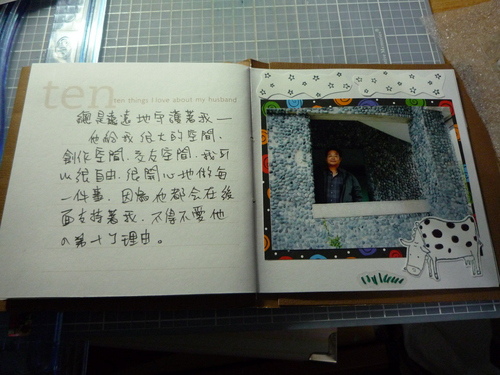 ten
ten things I love about my husband
總是遠遠地守護著我—
他給我很大的空間、
創作空間、交友空間、我可
以很自由、很開心地做每
一件事,因為他都會在後
面支持著我,不得不愛他
の第十个理由。